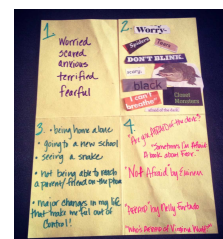 1.
Worried
scared
anxious
terrified
fearful
2.
Worry-
DON'T BLINK.
scary.
black
I can't
breathe
Closet
Monsters
3. • being home alone
• going to a new school
• seeing a snake
• Not being able to reach
a parent/friend on the phone
• major changes in my life
that make me feel out of
Control!
4.
"Are you AFRAID of the dark?"
"Sometimes I'm Afraid
A book about Fear."
"Not Afraid" by Eminem
"AFRAID" by Nelly Furtado
"Who's Afraid of Virginia Woolf"